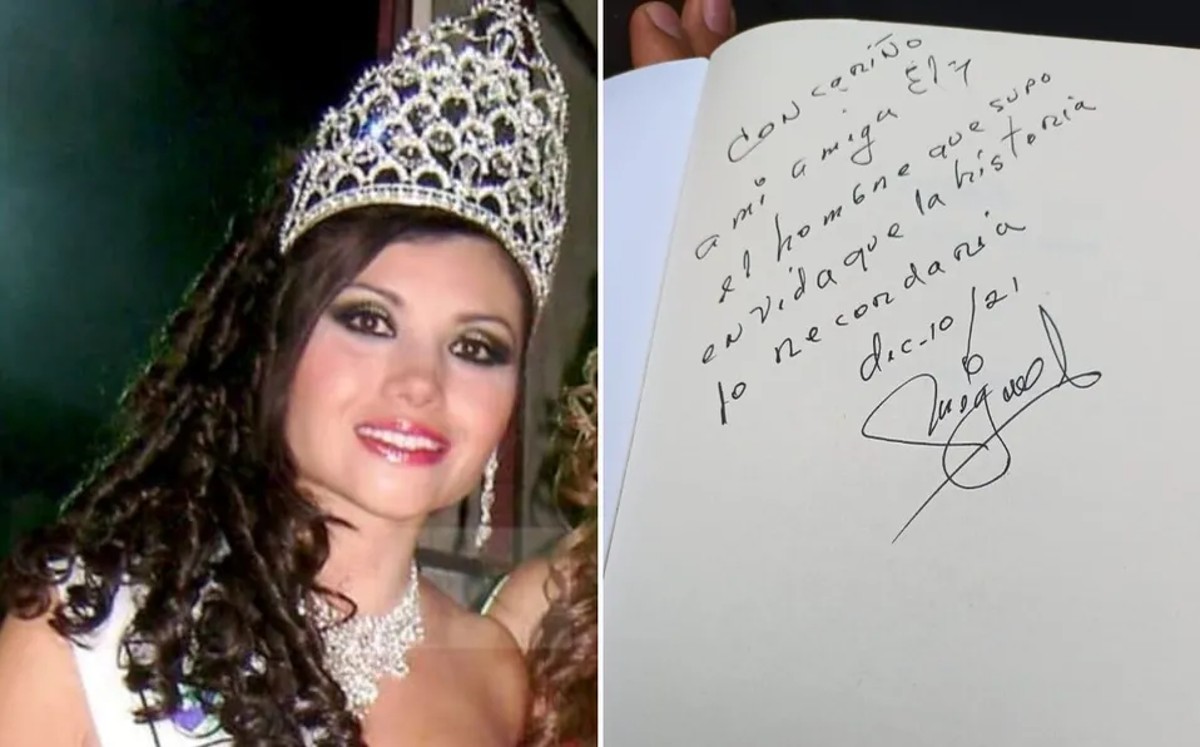 con cariño
a mi amiga Ely
el hombre que supo
en vida que la historia
lo recordaria
dic-10/21
Miguel